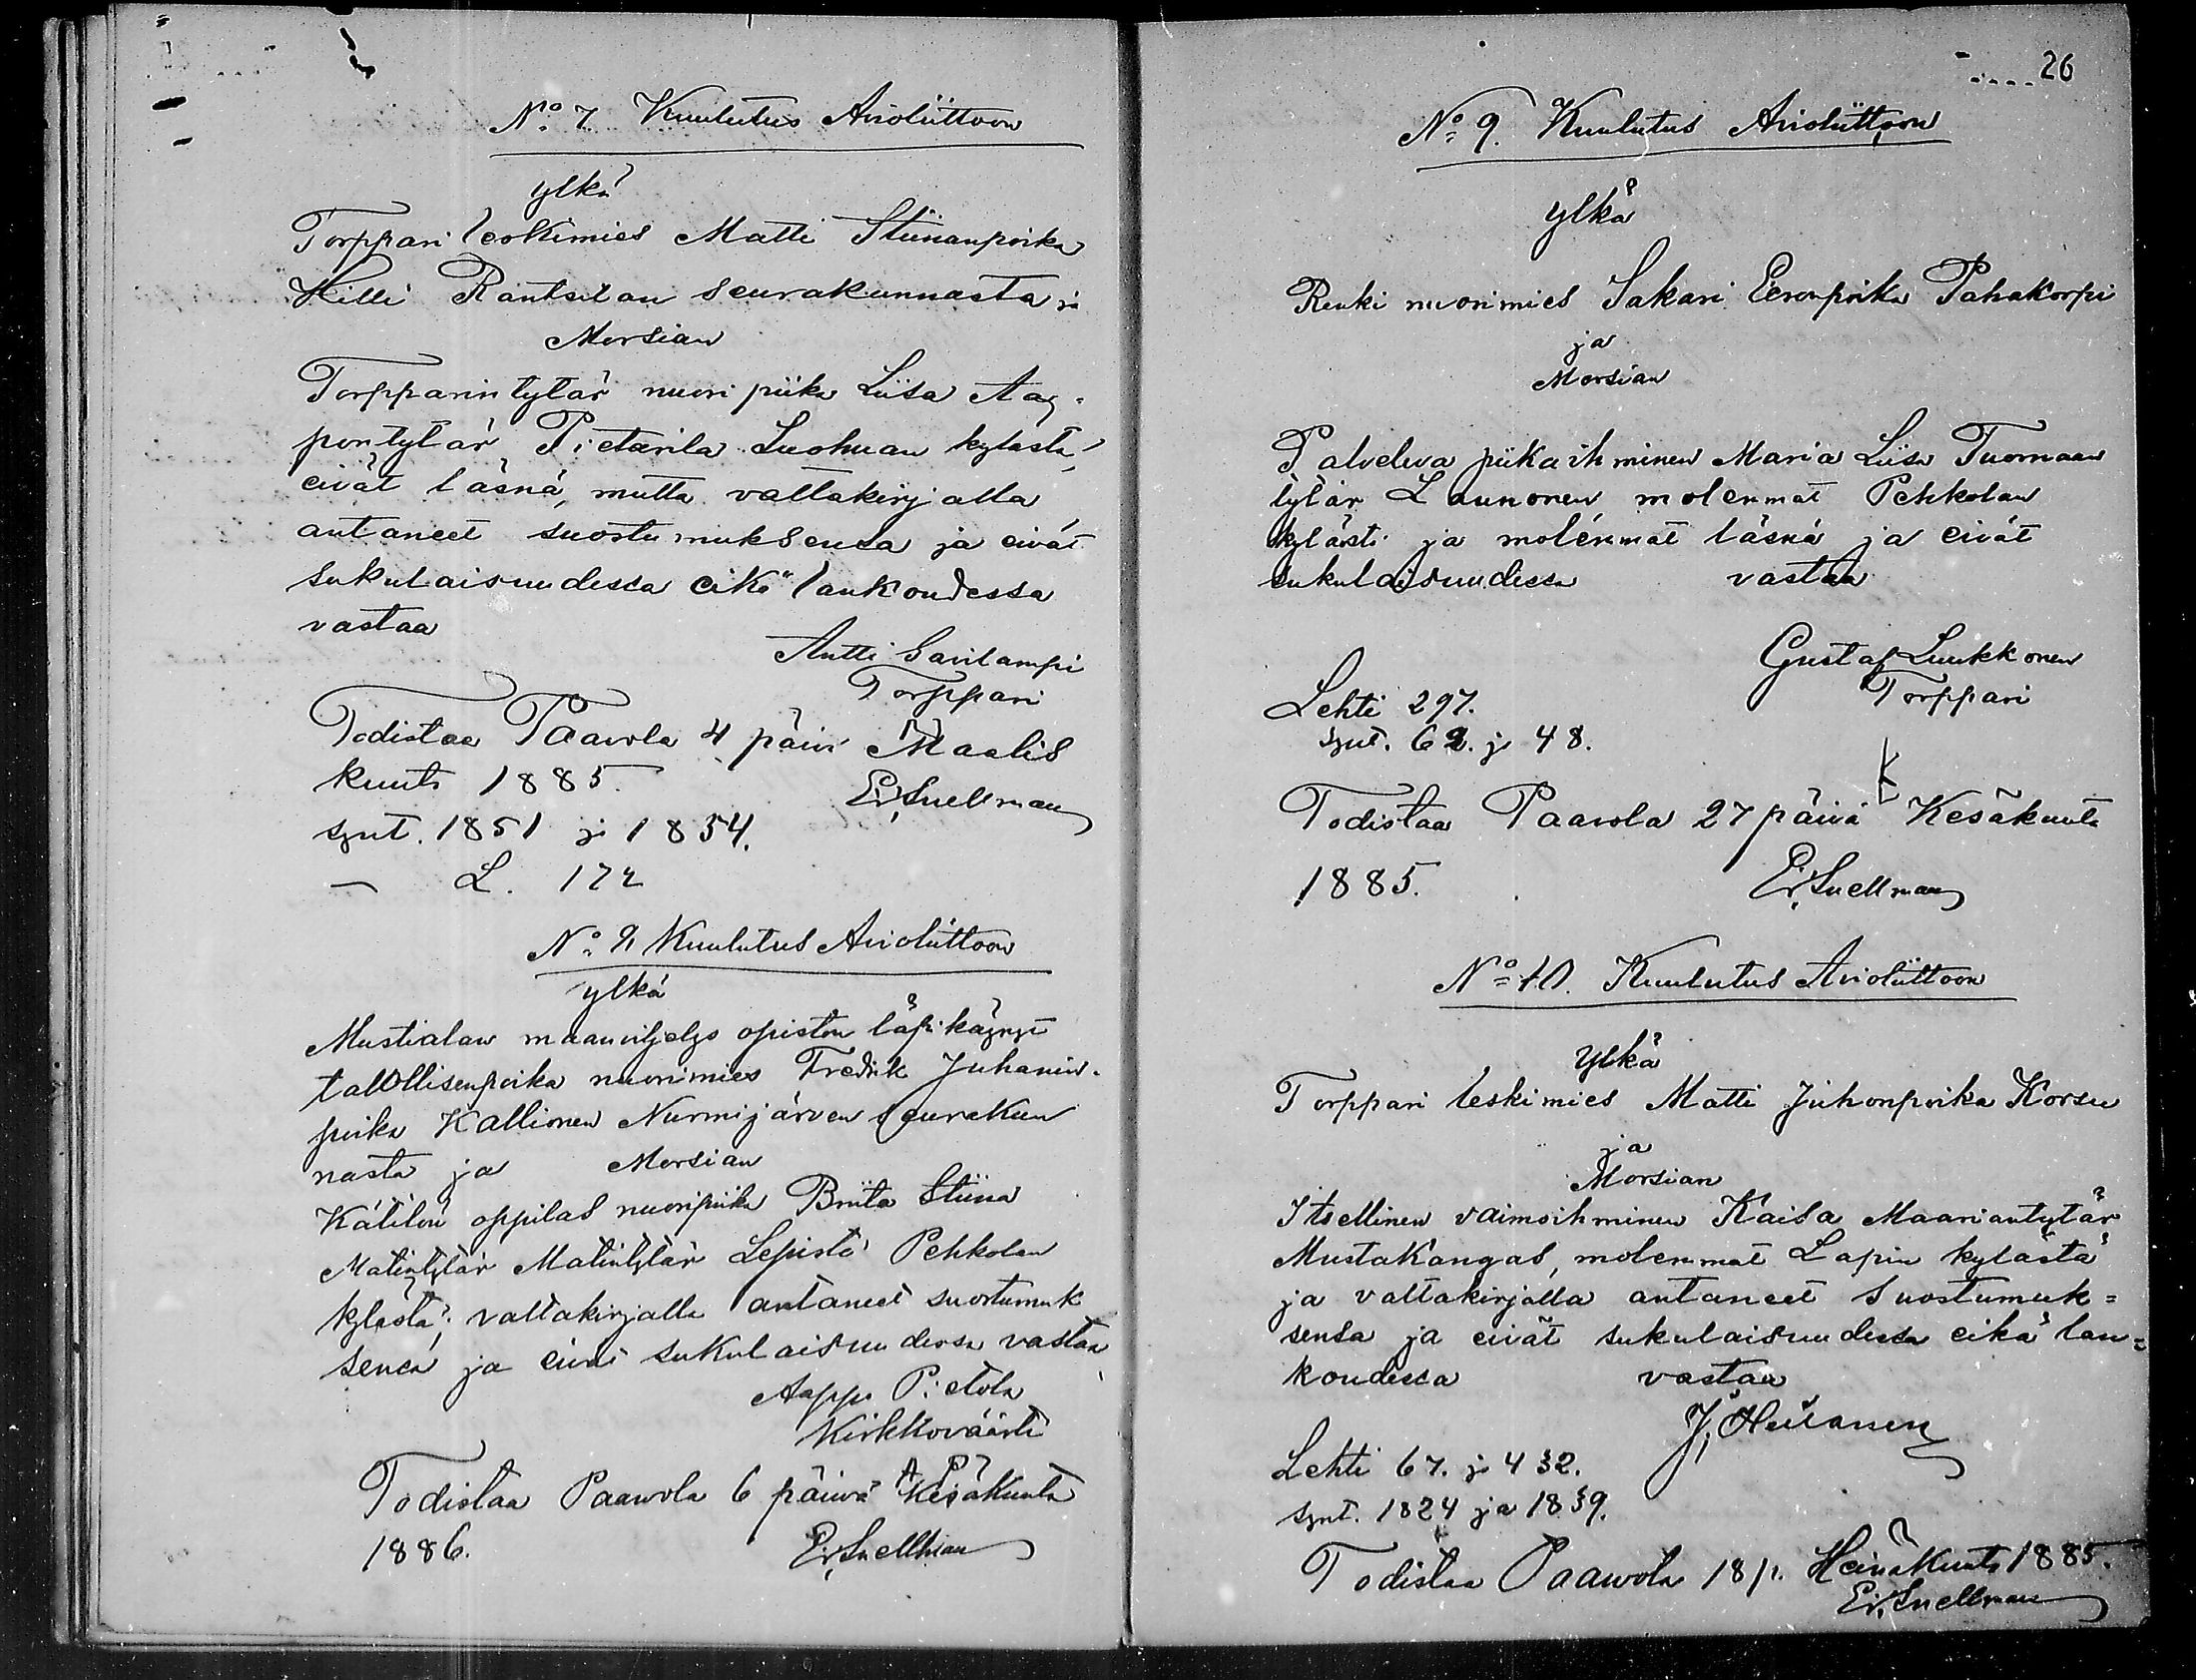 No 7 Kuulutus Avioliittoon
ylkä
Torppari leskimies Matti Stiinanpoika
Hilli Rantsilan seurakunnasta ja
Morsian
Torpparin tytär nuori piika Liisa Aag-
pontytär Pietarila Luohuan kylästä,
eivät läsnä, mutta valtakirjalla
antaneet suostumuksensa ja eivät
sukulaisuudessa eikä lankoudessa
vastaa
Antti Savilampi
Torppari
Todistaa Paavola 4 päiv Maalis
kuuta 1885.
Er. Snellman
synt. 1851 ja 1854.
— L. 172
No Kuulutus Avioliittoon
ylkä
Mustialan maanviljelys opiston läpikäynyt
talollisenpoika nuorimies Fredrik Juhanin-
poika Kallionen Nurmijärven seurakun
nasta ja Morsian
Kätilön oppilas nuoripiika Briita Stiina
Matintytär Matintytär Lepistö Pehkolan
kylästä; valtakirjalla antaneet suostumuk
sensa ja eivät sukulaisuudessa vastaa
Aappo Pietola
Kirkkoväärti
Todistaa Paawola 6 päivä Kesäkuuta
1886.
Er. Snellman
26
No 9. Kuulutus Avioliittoon
ylkä
Renki nuorimies Sakari Eeronpoika Pahakorpi
ja
Morsian
Palveleva piikaihminen Maria Liisa Tuomaan
tytär Launonen molemmat Pehkolan
kylästä ja molemmat läsnä ja eivät
sukulaisuudessa vastaa
Gustaf Luukkonen
Torppari
Lehti 297.
synt. 62. ja 48.
K
Todistaa Paavola 27 päivä Kesäkuuta
1885.
Er. Snellman
No 10. Kuulutus Avioliittoon
ylkä
Torppari leskimies Matti Juhonpoika Korsu
ja
Morsian
Itsellinen vaimoihminen Kaisa Maariantytär
Mustakangas, molemmat Lapin kylästä
ja valtakirjalla antaneet suostumuk=
sensa ja eivät sukulaisuudessa eikä lan=
koudessa vastaa
J. Heitanen
Lehti 67. ja 432.
synt. 1824 ja 1839.
Todistaa Paawola 18 p. Heinäkuuta 1885.
Er. Snellman